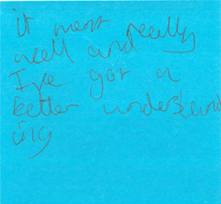 it went really
well and
I've got a
better understand
ing